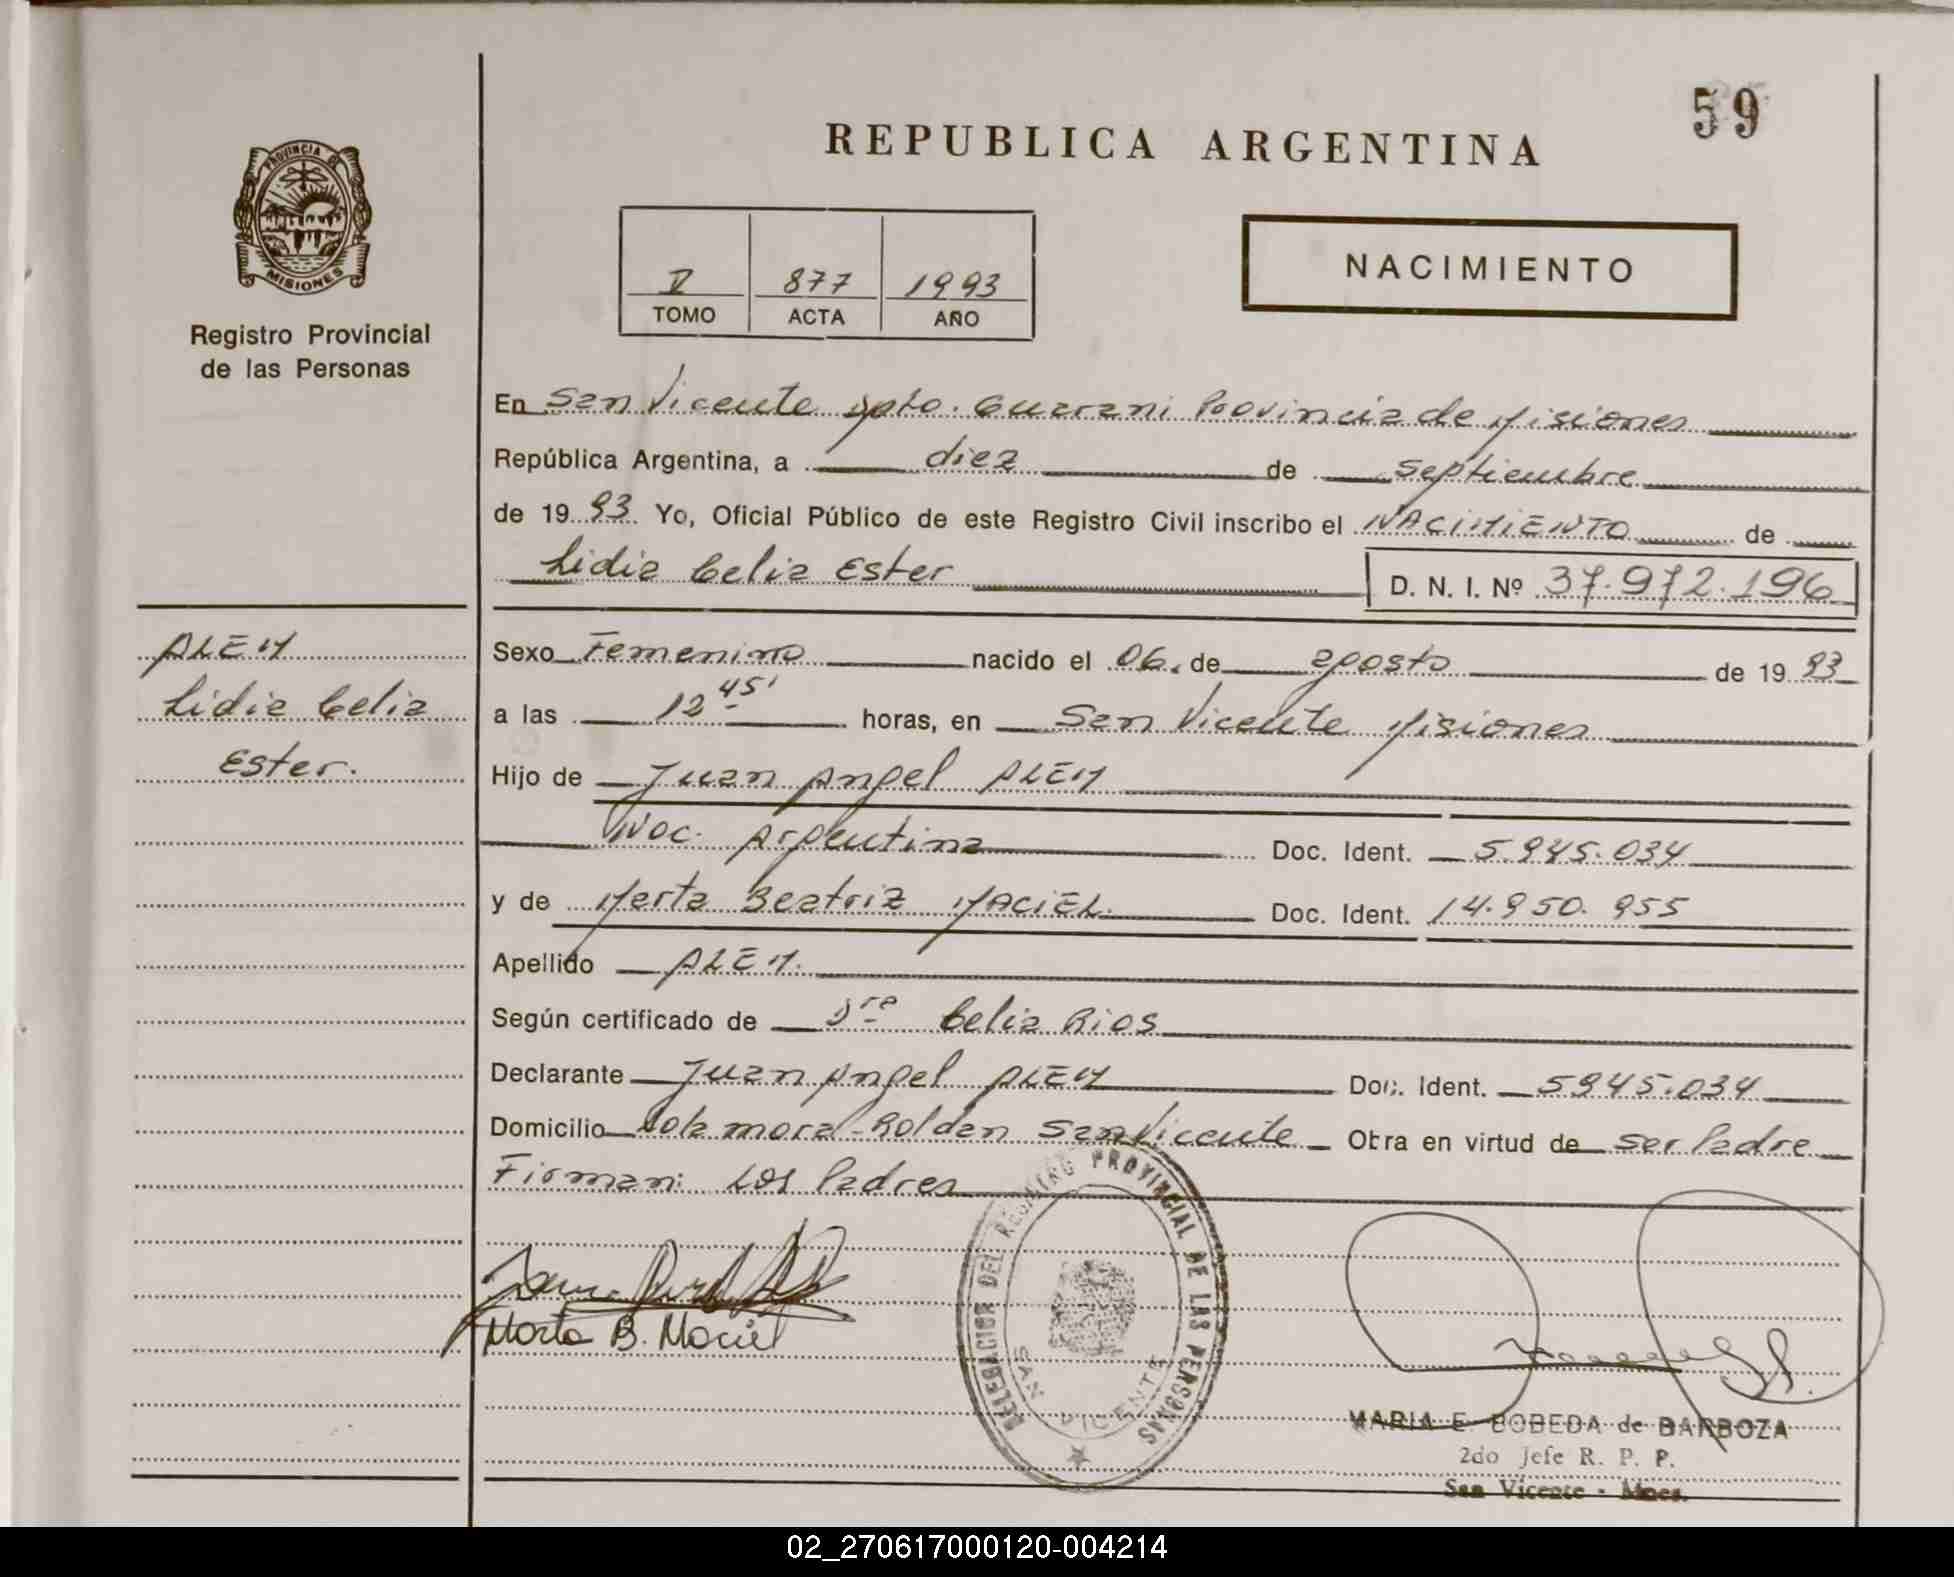 59
REPUBLICA ARGENTINA
PROVINCIA DE
MISIONES
Registro Provincial
de las Personas
V 877 1993
TOMO ACTA AÑO
NACIMIENTO
En San Vicente Dpto. Guarani Provincia de Misiones
República Argentina, a diez de septiembre
de 1993 Yo, Oficial Público de este Registro Civil inscribo el NACIMIENTO de
Lidia Celia Ester D. N. I. Nº 37.972.196
ALEM
Lidia Celia
Ester.
Sexo Femenino nacido el 06. de agosto de 1993
a las 12 45' horas, en San Vicente Misiones
Hijo de Juan Angel ALEM
Nac. Argentina Doc. Ident. 5.945.034
y de Marta Beatriz MACIEL Doc. Ident. 14.950.955
Apellido ALEM.
Según certificado de Dra Celia Rios
Declarante Juan Angel ALEM Doc. Ident. 5945.034
Domicilio Lola mora-Roldan San Vicente Obra en virtud de ser Padre
Firman: Los Padres
Marta B. Maciel
DELEGACION DEL REGISTRO PROVINCIAL DE LAS PERSONAS
SAN VICENTE
MARIA E. BOBEDA de BARBOZA
2do Jefe R. P. P.
San Vicente - Mnes.
02_270617000120-004214